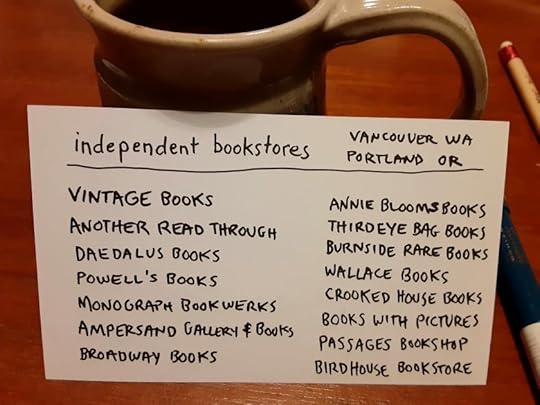 independent bookstores
VANCOUVER WA
PORTLAND OR
VINTAGE BOOKS
ANOTHER READ THROUGH
DAEDALUS BOOKS
POWELL'S BOOKS
MONOGRAPH BOOKWERKS
AMPERSAND GALLERY & BOOKS
BROADWAY BOOKS
ANNIE BLOOMS BOOKS
THIRDEYE BAG BOOKS
BURNSIDE RARE BOOKS
WALLACE BOOKS
CROOKED HOUSE BOOKS
BOOKS WITH PICTURES
PASSAGES BOOKSHOP
BIRDHOUSE BOOKSTORE